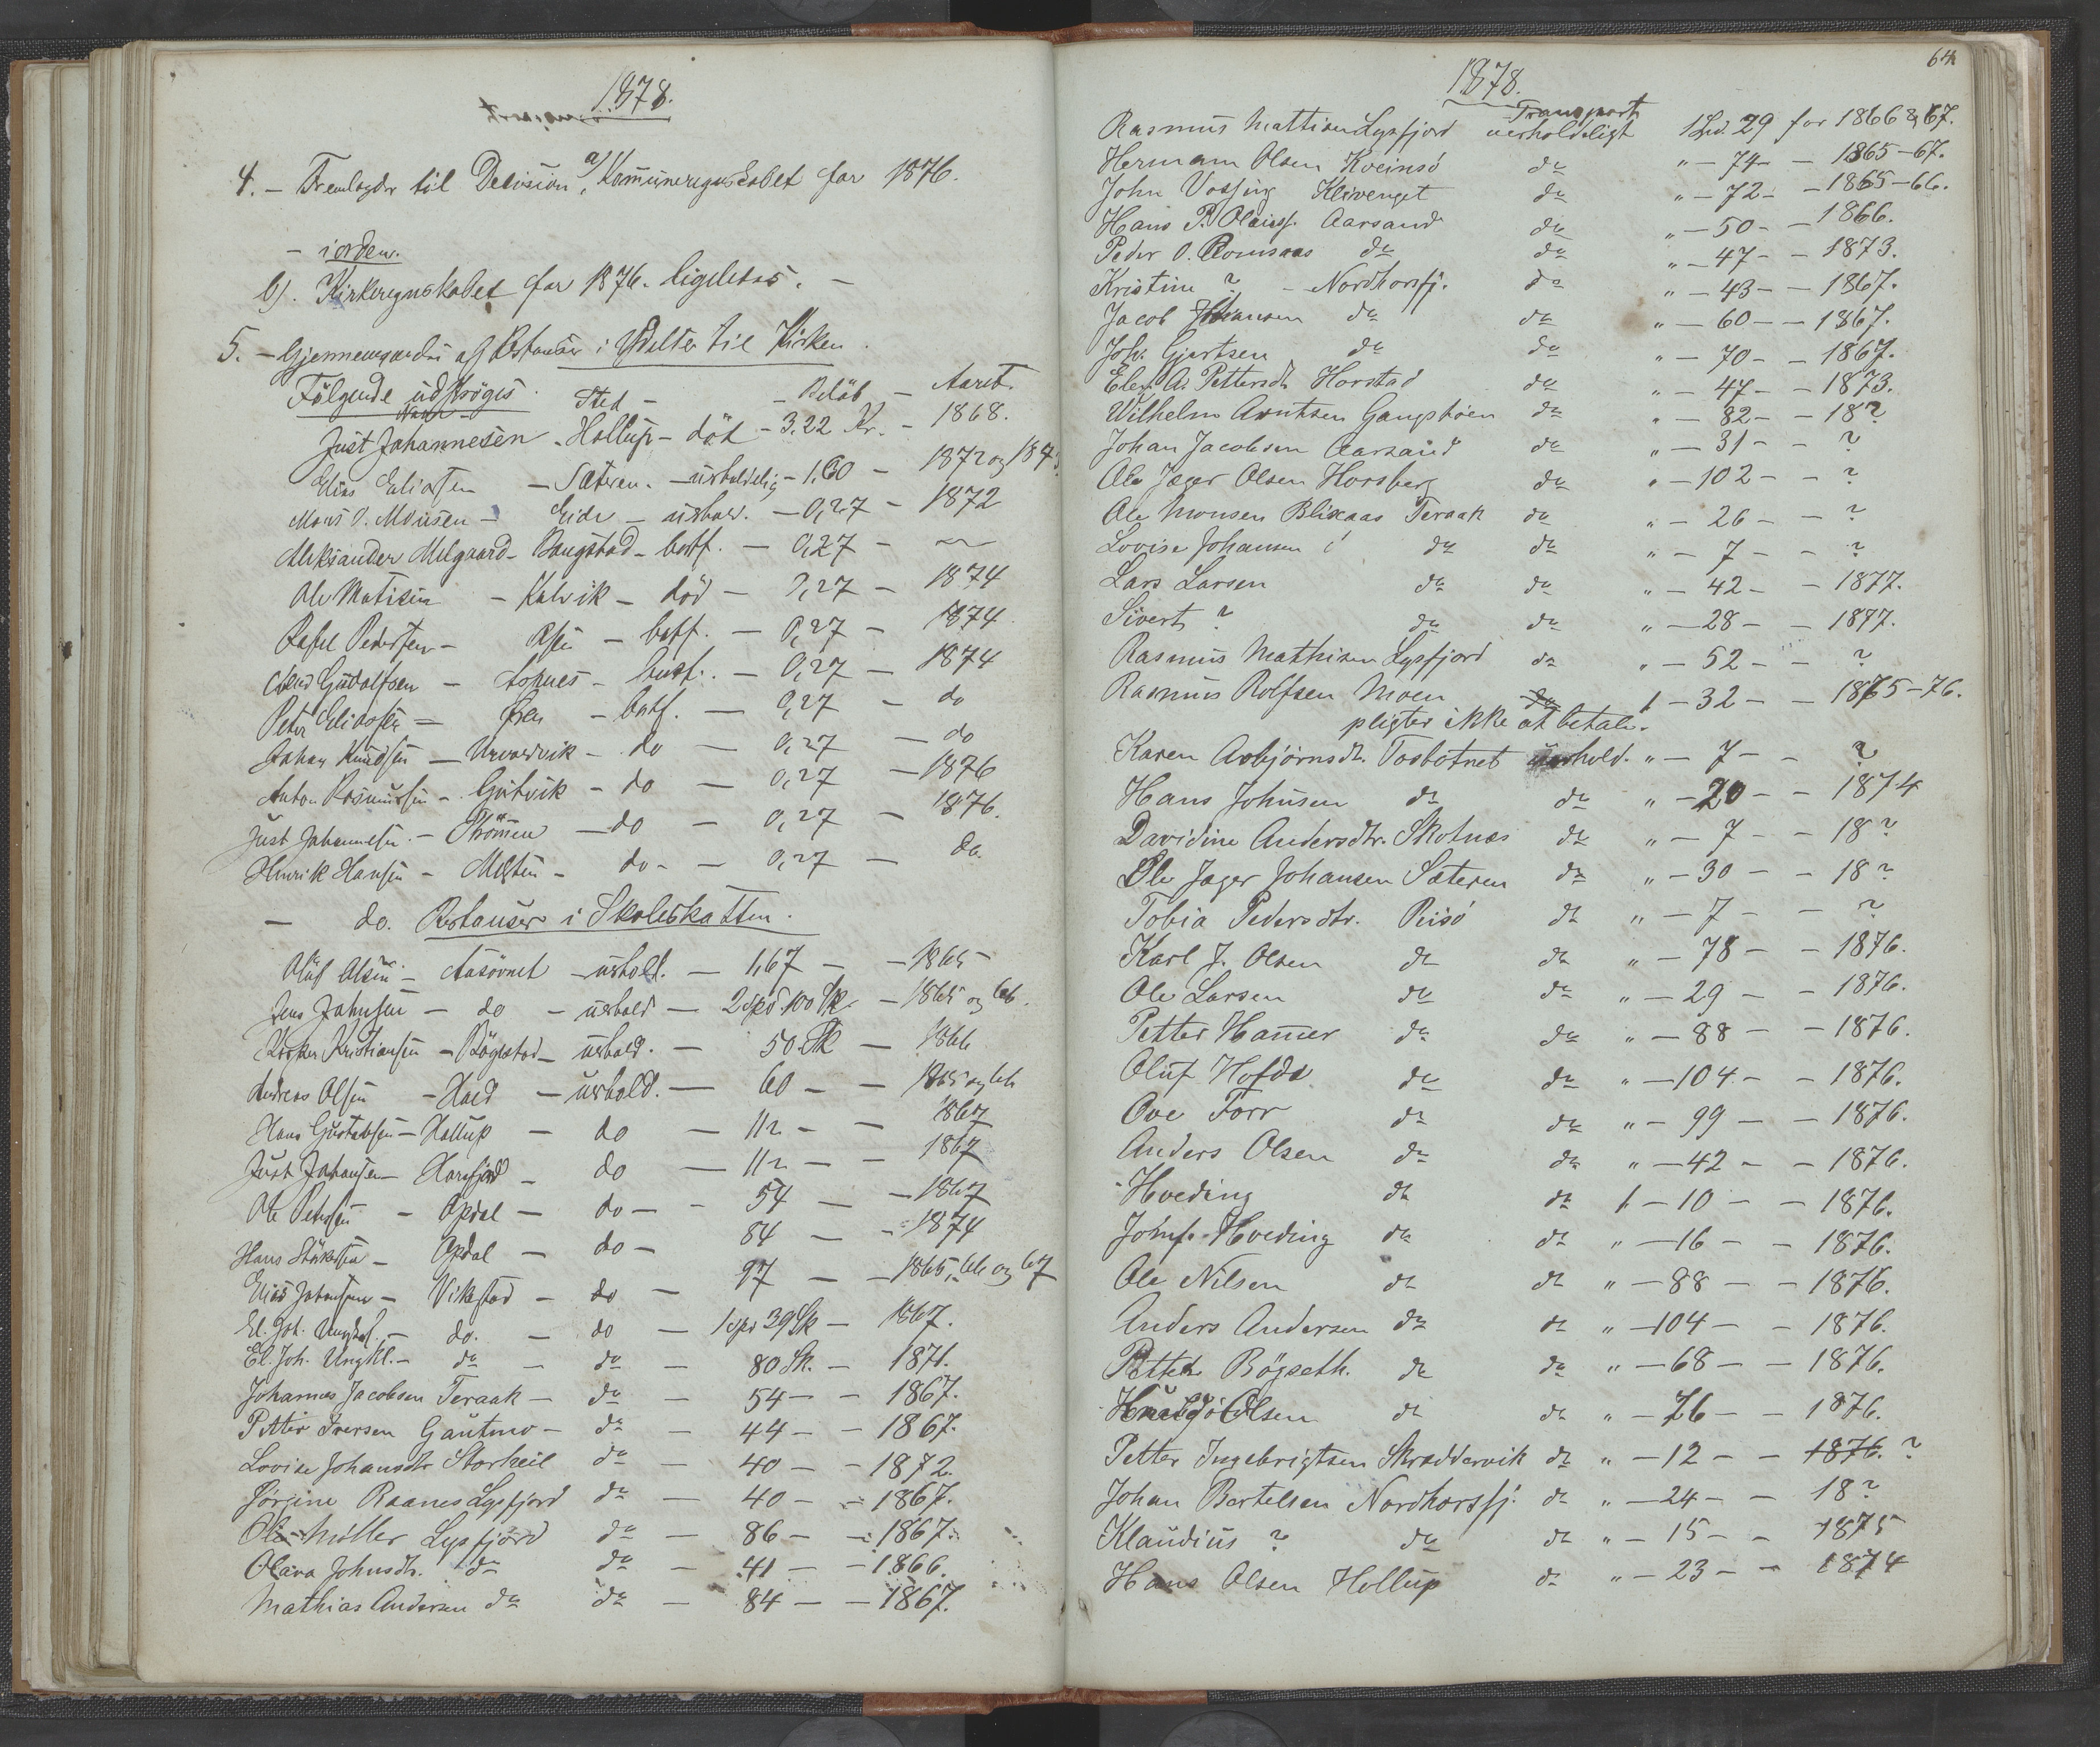 1878.
4. - Fremlagdes til Decision, a/ Kommuneregnskabet for 1876.
- i orden.
b). Kirkeregnskabet for 1876. ligeledes. -
5. - Gjennemgaaedes af Restancer i Udelter til Kirken.
Følgende udstrøges.
Navn - Sted - - Beløb - Aaret.
Just Johannesen - Hollup - död - 3.22 Kr. - 1868.
Elias Eliasen - Sæteren. - uerholdelig - 1,60 - 1872 og 187
Mons O. Monsen - Eide - uerhol. - 0,27 - 1872
Aleksander Melgaard - Bangstad - bortf. - 0,27 - "
Ole Matisen - Kalvik - död - 0,27 - 1874
Rafel Pedersen - - bortf. - 0,27 - 1874
Gudolfsen - - bortf. - 0,27 - 1874
Peter Eliasen - Øren - bortf. - 0,27 - do
Johan Knudsen - Urvoldvik - do - 0,27 - do
Anton Rasmussen - Gutvik - do - 0,27 - 1876
Just Johannesen - Strömen - do - 0,27 - 1876.
Henrik Hansen - Melsten - do - - 0,27 - do.
- do. Restancer i Skoleskatten.
Oluf Olsen - Aasövnet - uerhold. - 1,67 - - 1865 -
Jens Johnsen - do - uerhold - 2 spd. 100 Sk - 1865 og 66.
Kristiansen - Bögestad - uerhold. - 50 Sk - 1866
Andreas Olsen - Heid - uerhold. - 60 - - 1865 og 66
Hans Gustavsen - Hollup - do - 112 - - 1867
Just Johansen - Horsfjord - do - 112 - - 1867
Ole Petersen - Opdal - do - - 54 - - 1867
Hans - Opdal - do - 84 - - 1874
Elias Johansen - Vikestad - do - 97 - - 1865, 66 og 67
El. Joh. Ungkl. - do. - do - 1 spd 39 Sk - 1867.
El. Joh. Ungkl. - do - do - 80 Sk. - 1871.
Johannes Jacobsen Teraak - do - 54 - - 1867.
Petter Iversen Gautmo - do - 44 - - 1867.
Lovise Johansdtr Storheil do - 40 - - 1872.
Jörgine Raanes Lysfjord do - 40 - - 1867.
Ole Möller Lysfjord do - 86 - - 1867.
Olava Johnsdtr. do do - 41 - - 1866.
Mathias Andersen do do - 84 - - 1867.
64
1878.
Transport
Rasmus Mattisen Lysfjord uerholdeligt 1 Spd. 29 for 1866 & 67.
Hermann Olsen Kveinsö do " - 74 - - 1865-67.
John Vassing Klivenget do " - 72 - - 1865-66.
Hans P. Olaiss. Aarsand do " - 50 - - 1866.
Peder O. Romsaas do do " - 47 - - 1873.
Kristine ? - Nordhorsfj. do " - 43 - - 1867.
Jacob Johansen do do " - 60 - - 1867.
Joh. Gjertsen do do " - 70 - - 1867.
Elen A. Pettersdtr Horstad do " - 47 - - 1873.
Wilhelm Arntsen Gangstöen do " - 82 - - 18?
Johan Jacobsen Aarsand do " - 31 - - ?
Ole Jæger Olsen Horsberg do " - 102 - - ?
Ole Monsen Blixaas Teraak do " - 26 - - ?
Lovise Johansen do do " - 7 - - ?
Lars Larsen do do " - 42 - - 1877.
Sivert ? do do " - 28 - - 1877.
Rasmus Mathisen Lysfjord do " - 52 - - ?
Rasmus Rolfsen Moen do 1 - 32 - - 1865-76.
pligter ikke at betale.
Karen Asbjörnsdtr. Tosbotnet uerhold. " - 7 - - ?
Hans Johnsen do do " - 20 - - 1874
Davidine Andersdtr. Skotnes do " - 7 - - 18?
Ole Jæger Johansen Sæteren do " - 30 - - 18?
Tobia Pedersdtr. Reisö do " - 7 - - ?
Karl J. Olsen do do " - 78 - - 1876.
Ole Larsen do do " - 29 - - 1876.
Petter Hamer do do " - 88 - - 1876.
Oluf Hofde do do " - 104 - - 1876.
Ove Torr do do " - 99 - - 1876.
Anders Olsen do do " - 42 - - 1876.
Hveding do do 1 - 10 - - 1876.
Jomf. Hveding do do " - 16 - - 1876.
Ole Nilsen do do " - 88 - - 1876.
Anders Andersen do do " - 104 - - 1876.
Petter Bögseth. do do " - 68 - - 1876.
Olsen do do " - 76 - - 1876.
Petter Ingebrigtsen Skraddervik do " - 12 - - 1876. ?
Johan Bertelsen Nordhorsfj. do " - 24 - - 18?
Klaudius ? do do " - 15 - - 1875
Hans Olsen Hollup do " - 23 - - 1874